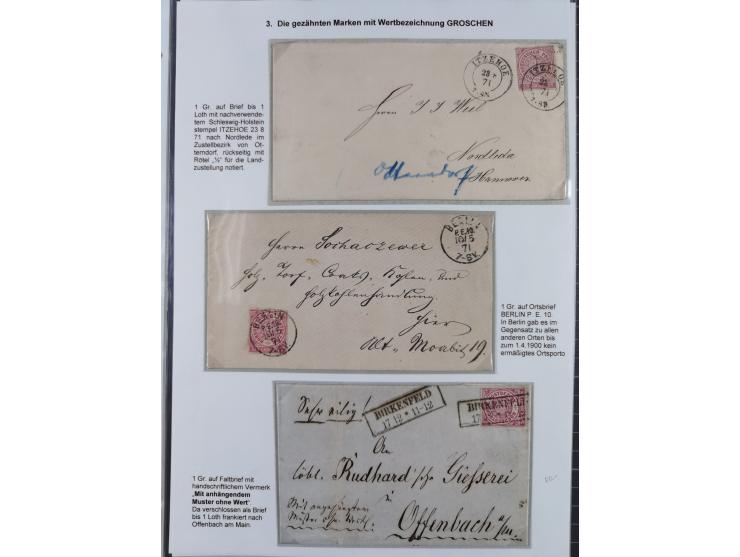 3. Die gezähnten Marken mit Wertbezeichnung GROSCHEN
1 Gr. auf Brief bis 1
Loth mit nachverwende-
tem Schleswig-Holstein
stempel ITZEHOE 23 8
71 nach Nordlede im
Zustellbezirk von Ot-
terndorf, rückseitig mit
Rötel „½" für die Land-
zustellung notiert.
ITZEHOE
71
ITZEHOE
71
Herrn
Nordleda
Otterndorf
Hannover
BERLIN
P.E.10.
10/5
71
7-8V.
Herrn Sochaczewer
Holz, Torf, Coaks, Kohlen und
Holzkohlenhandlung
Hier
Alt-Moabit 19.
BERLIN
1 Gr. auf Ortsbrief
BERLIN P. E. 10.
In Berlin gab es im
Gegensatz zu allen
anderen Orten bis
zum 1.4.1900 kein
ermäßigtes Ortsporto
Sehr eilig!
BIRKENFELD
17 12 * 11-12
BIRKENFELD
17
An
löbl. Rudhard'sche Giesserei
in
Mit angehängtem
Muster ohne Werth
Offenbach a/m.
1 Gr. auf Faltbrief mit
handschriftlichem Vermerk
„Mit anhängendem
Muster ohne Wert".
Da verschlossen als Brief
bis 1 Loth frankiert nach
Offenbach am Main.